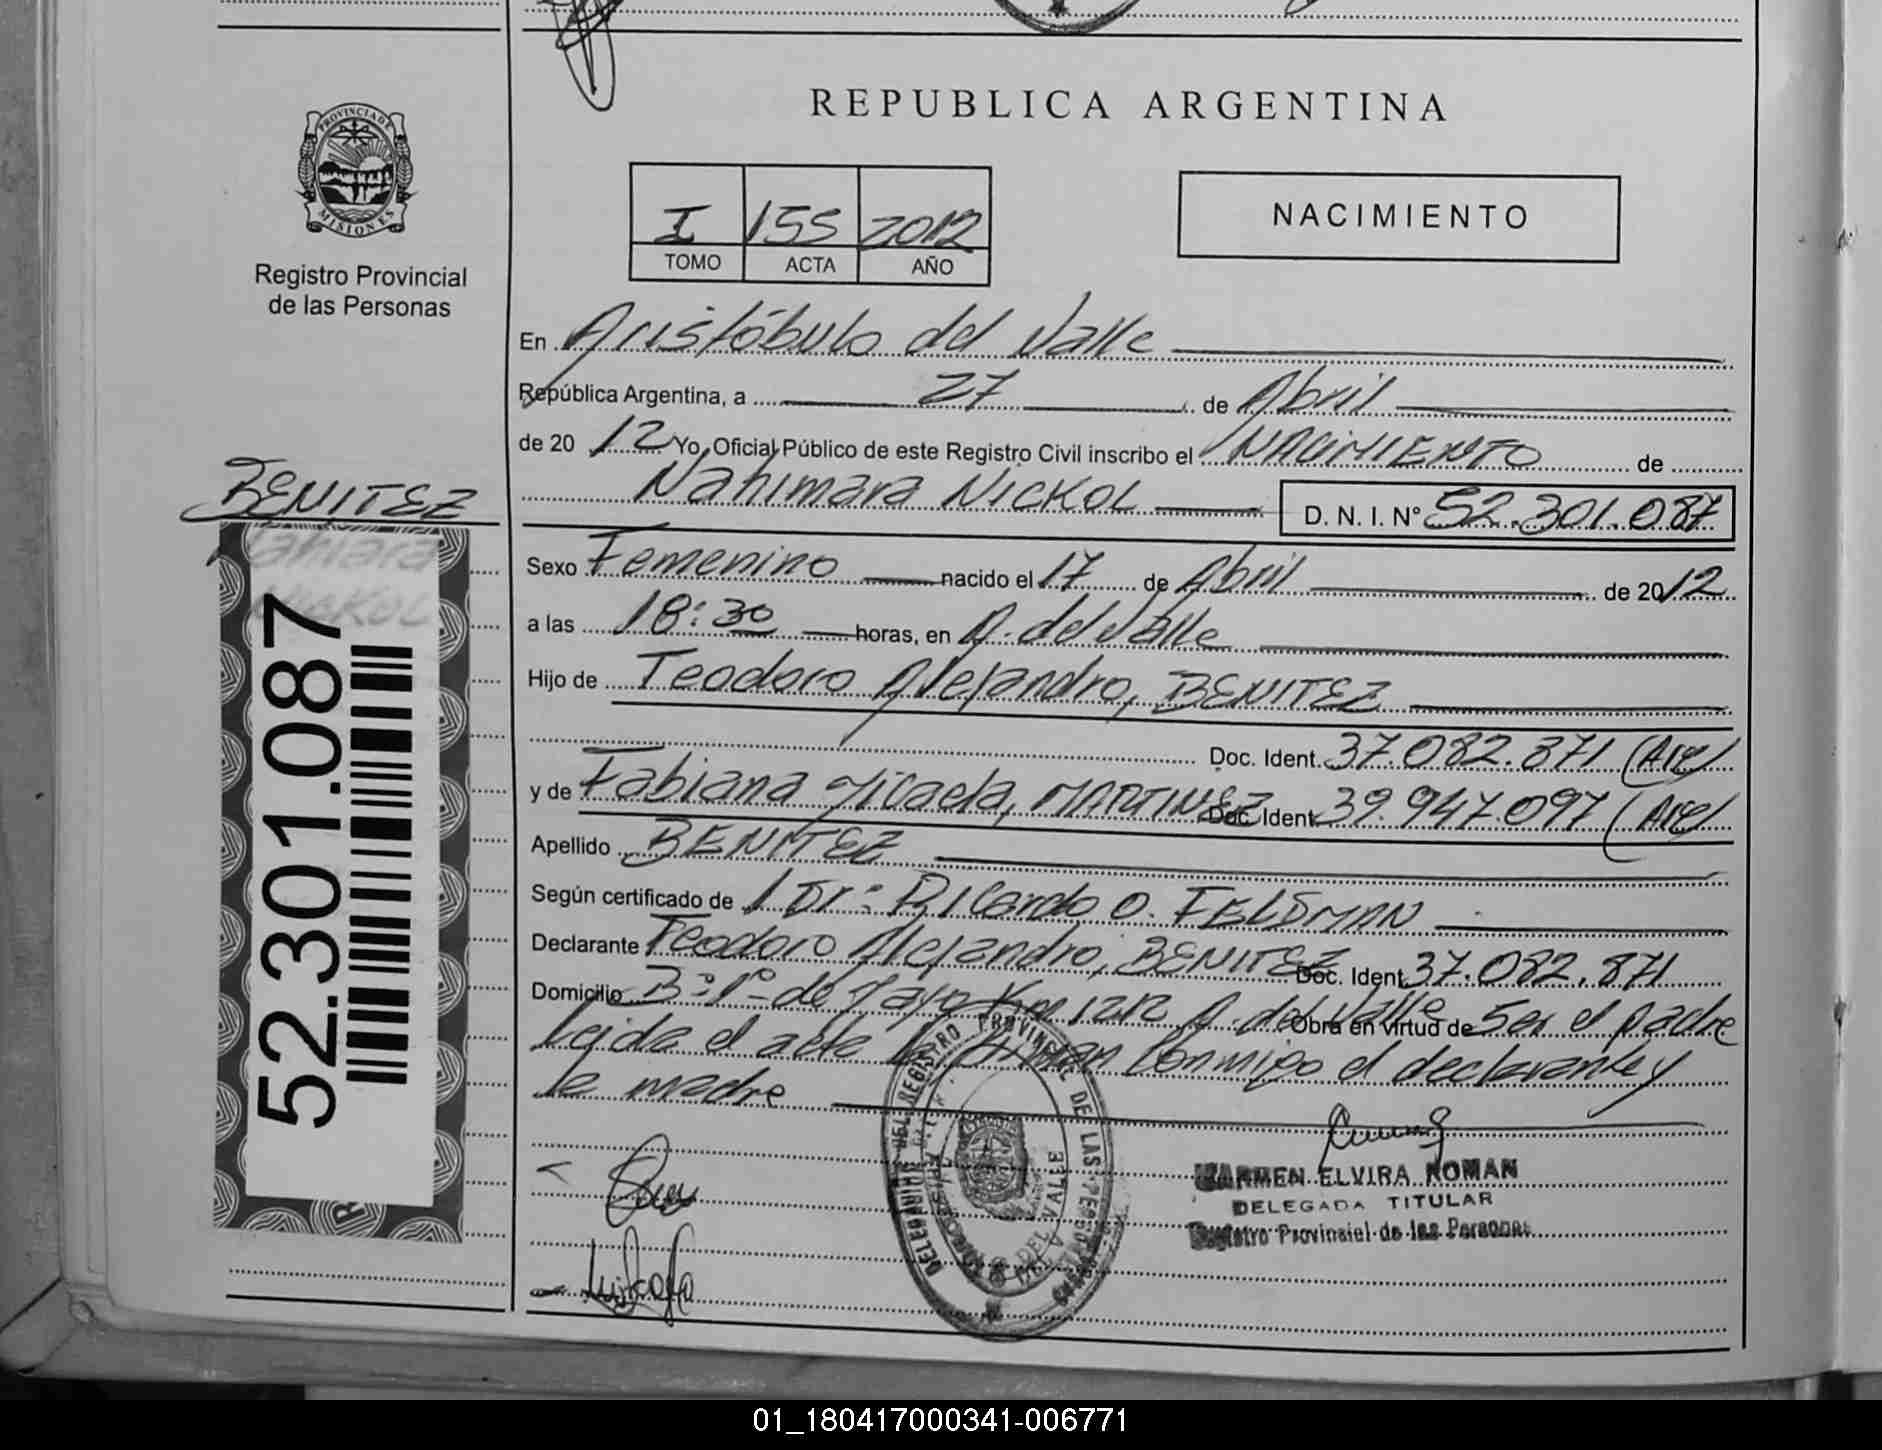 REPUBLICA ARGENTINA
PROVINCIA DE MISIONES
Registro Provincial
de las Personas
I 155 2012
TOMO ACTA AÑO
NACIMIENTO
En Aristóbulo del Valle
República Argentina, a 27 de Abril
de 20 12 Yo, Oficial Público de este Registro Civil inscribo el NACIMIENTO de
Nahimara NICKOL D. N. I. N° 52.301.087
BENITEZ
Nahiara
NICKOL
52.301.087
Sexo Femenino nacido el 17 de Abril de 2012
a las 18:30 horas, en A. del Valle
Hijo de Teodoro Alejandro, BENITEZ
Doc. Ident. 37.082.871 (Arg)
y de Fabiana Micaela, MARTINEZ Doc. Ident. 39.947.097 (Arg)
Apellido BENITEZ
Según certificado de 1 Dr: Ricardo O. FELDMAN
Declarante Teodoro Alejandro, BENITEZ Doc. Ident. 37.082.871
Domicilio B° 1° de Mayo Km 1212 A. del Valle Obra en virtud de Ser el padre
Leida el acta la firman conmigo el declarante y
la madre
CARMEN ELVIRA ROMAN
DELEGADA TITULAR
Registro Provincial de las Personas
REGISTRO PROVINCIAL DE LAS PERSONAS
DEL VALLE
01_180417000341-006771